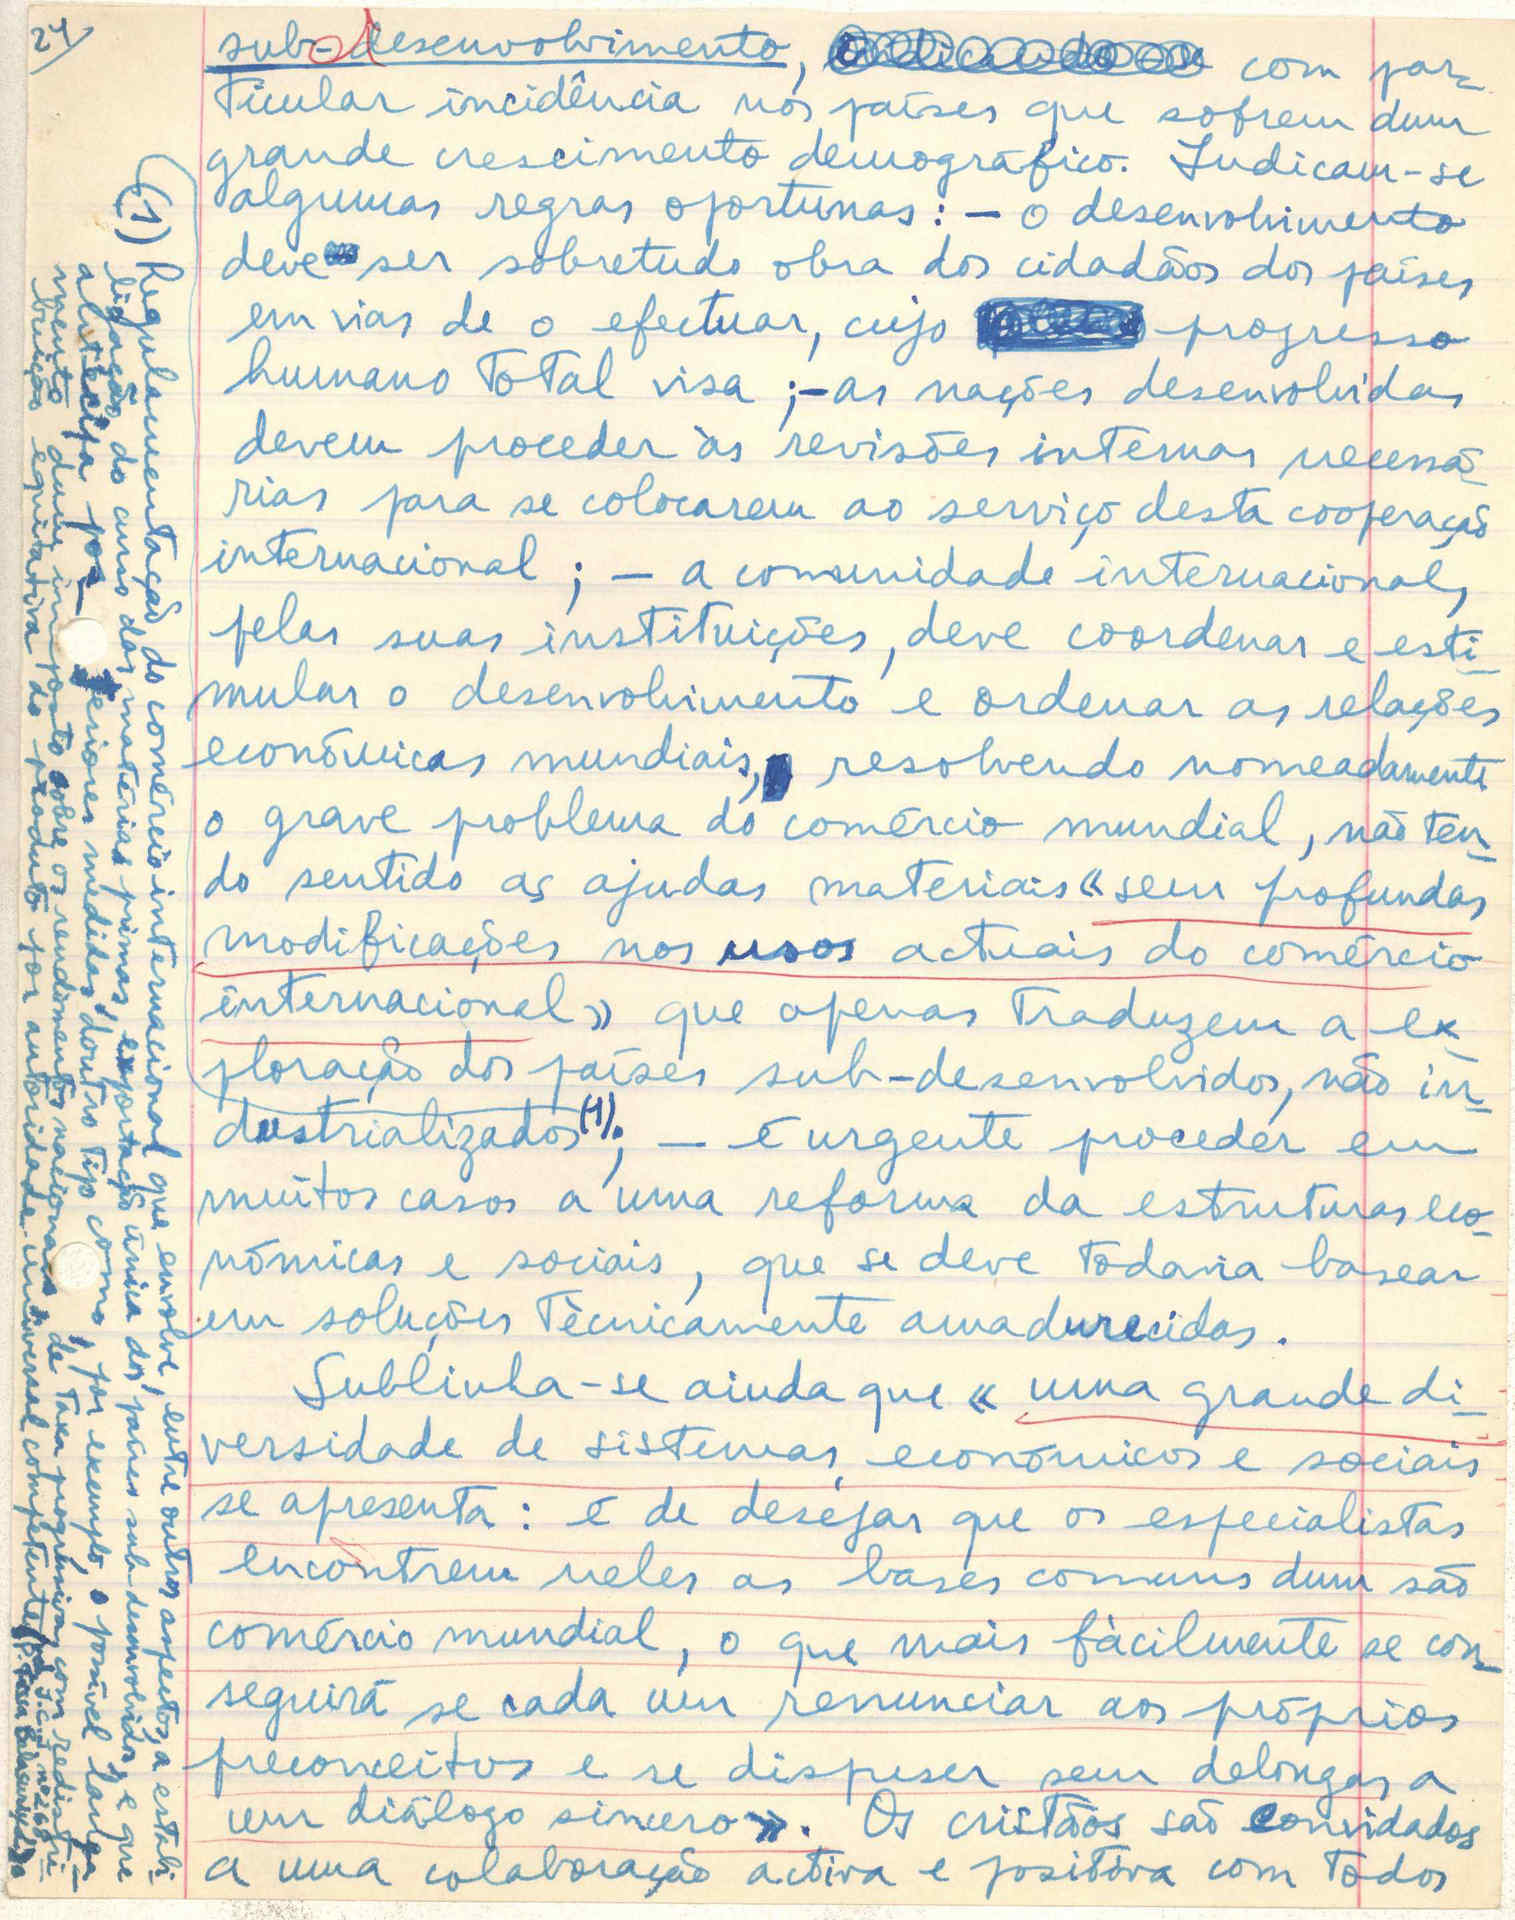 24
sub-desenvolvimento, com par-
ticular incidência nos países que sofrem dum
grande crescimento demográfico. Indicam-se
algumas regras oportunas: - o desenvolvimento
deve ser sobretudo obra dos cidadãos dos países
em vias de o efectuar, cujo progresso
humano total visa ; - as nações desenvolvidas
devem proceder às revisões internas necessá-
rias para se colocarem ao serviço desta cooperação
internacional ; - a comunidade internacional,
pelas suas instituições, deve coordenar e esti-
mular o desenvolvimento e ordenar as relações
económicas mundiais, resolvendo nomeadamente
o grave problema do comércio mundial, não ten-
do sentido as ajudas materiais «sem profundas
modificações nos usos actuais do comércio
internacional» que apenas traduzem a ex-
ploração dos países sub-desenvolvidos, não in-
dustrializados(1); - é urgente proceder em
muitos casos a uma reforma da estruturas eco-
nómicas e sociais, que se deve todavia basear
em soluções tècnicamente amadurecidas.
Sublinha-se ainda que «uma grande di-
versidade de sistemas económicos e sociais
se apresenta: é de desejar que os especialistas
encontrem neles as bases comuns dum são
comércio mundial, o que mais fàcilmente se con-
seguirá se cada um renunciar aos próprios
preconceitos e se dispuser sem delongas a
um diálogo sincero». Os cristãos são convidados
a uma colaboração activa e positiva com todos
(1) Regulamentação do comércio internacional que envolve, entre outros aspectos, a estabi-
lização do curso das matérias primas, exportação única dos países sub-desenvolvidos, e que
altecipa pos-
teriores medidas doutro tipo como, por exemplo, o possível lança-
mento dum imposto sobre os rendimentos nacionais, de taxa progressiva, com redistri-
buição equitativa do produto por autoridade universal competente